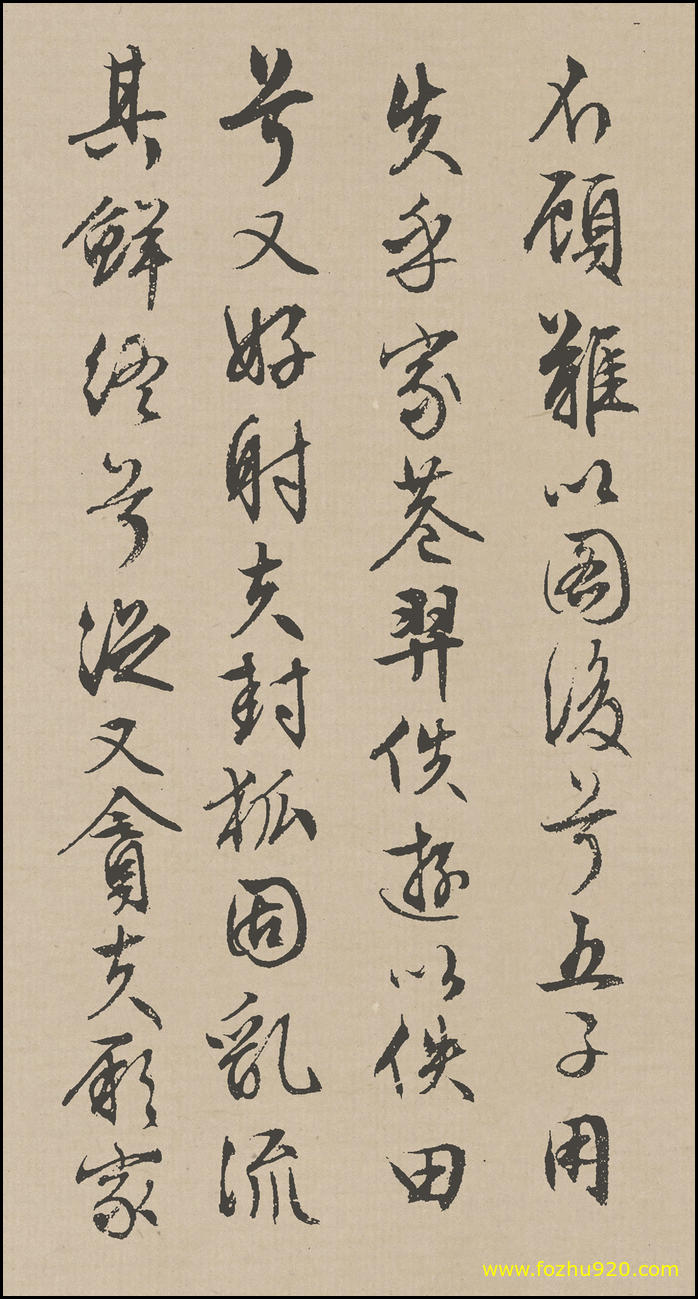 不顧難以圖後兮五子用
失乎家巷羿佚遊以佚田
兮又好射夫封狐固亂流
其鮮終兮浞又貪夫厥家
www.fozhu920.com